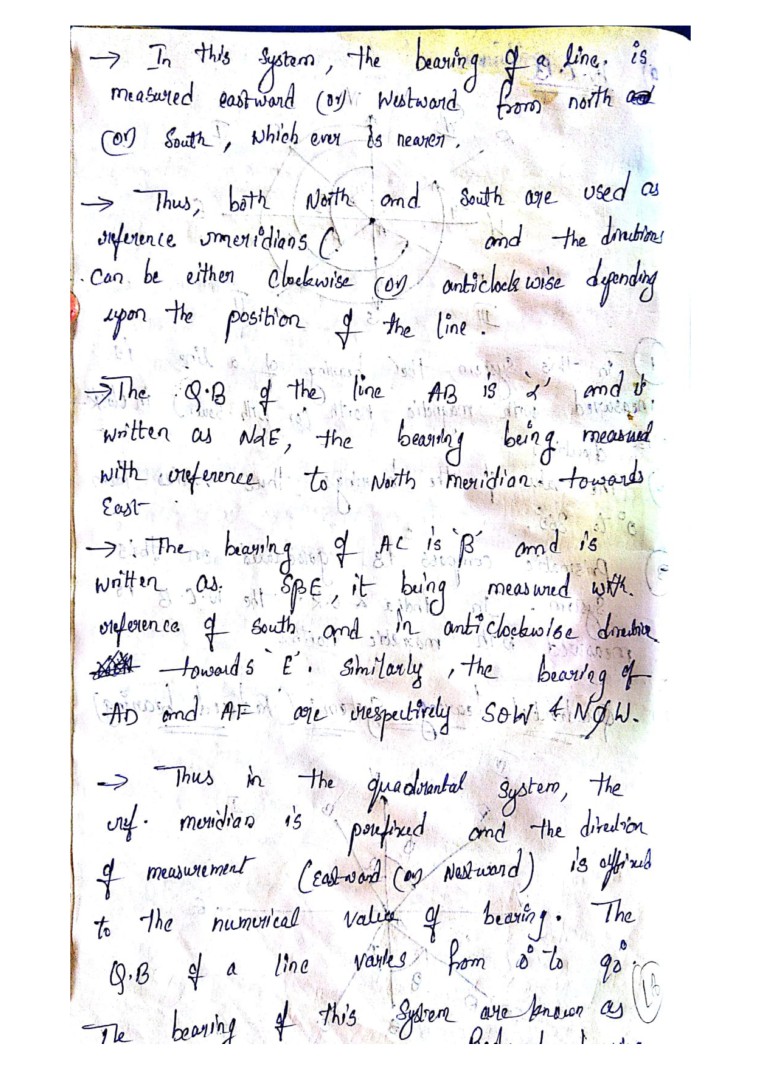 → In this System, the bearing of a line. is
measured eastward (or) Westward from north
(or) South, which ever is nearer.
→ Thus, both North and South are used as
reference meridians ( and the directions
Can be either Clockwise (or) anticlockwise depending
upon the position of the line.
→ The Q.B of the line AB is 'α' and is
written as NαE, the bearing being measured
with reference to North meridian. towards
East
→ The bearing of AC is 'β' and is
written as. SβE, it being measured with.
reference of South and in anticlockwise direction
towards 'E'. Similarly, the bearing of
AD and AF are respectively SθW & NφW.
→ Thus in the quadrantal System, the
ref. meridian is prefixed and the direction
of measurement (Eastward (or) Westward) is affixed
to the numerical value of bearing. The
Q.B of a line varies from 0° to 90°.
The bearing of this System are known as